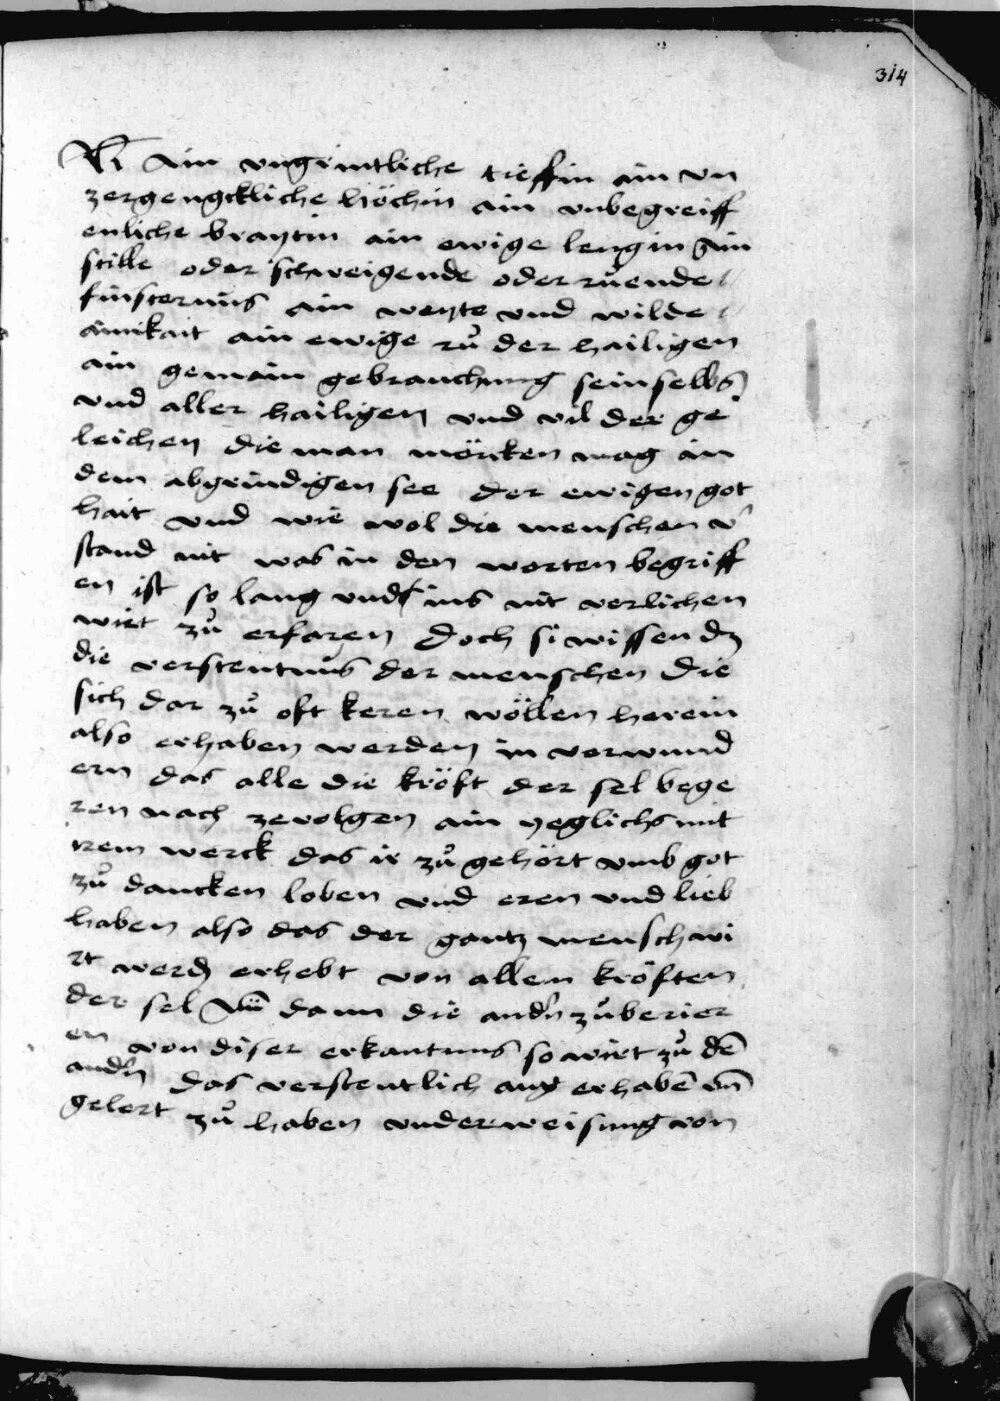 314
Ain ungrintliche tieffin ain un
zergengckliche höchin ain unbegreiff
enliche braytin ain ewige lengin Ain
stille oder schweigende oder rüende
finsternus ain weyte und wilde
ainikait ain ewige rů der hailigen
ain gemain gebrauchung sein selbs
und aller hailigen und vil der ge
leichen die man möricken mag an
dem abgrindigen see der ewigen got
hait und wie wol die menschen v̾
stand nit was in den worten begriff
en ist so lang und ins nit verlichen
wirt zů erfaren doch si wissen dz
die verstentnus der menschen die
sich dar zů oft keren wöllen herein
also erhaben werden in verwund
ern das alle die kröft der sel bege
ren nach zevolgen ain yeglichs mit
irem werck das ir zů gehört umb got
zů dancken loben und eren und lieb
haben also das der gantz mensch wi
rt werd erhebt von allem kröften
der sel Nū dann die and̾n zůberier
en von diser erkantnus so wirt zů dē
and̾n das verstentlich aug erhabē un̄
gelert zů haben underweisung von